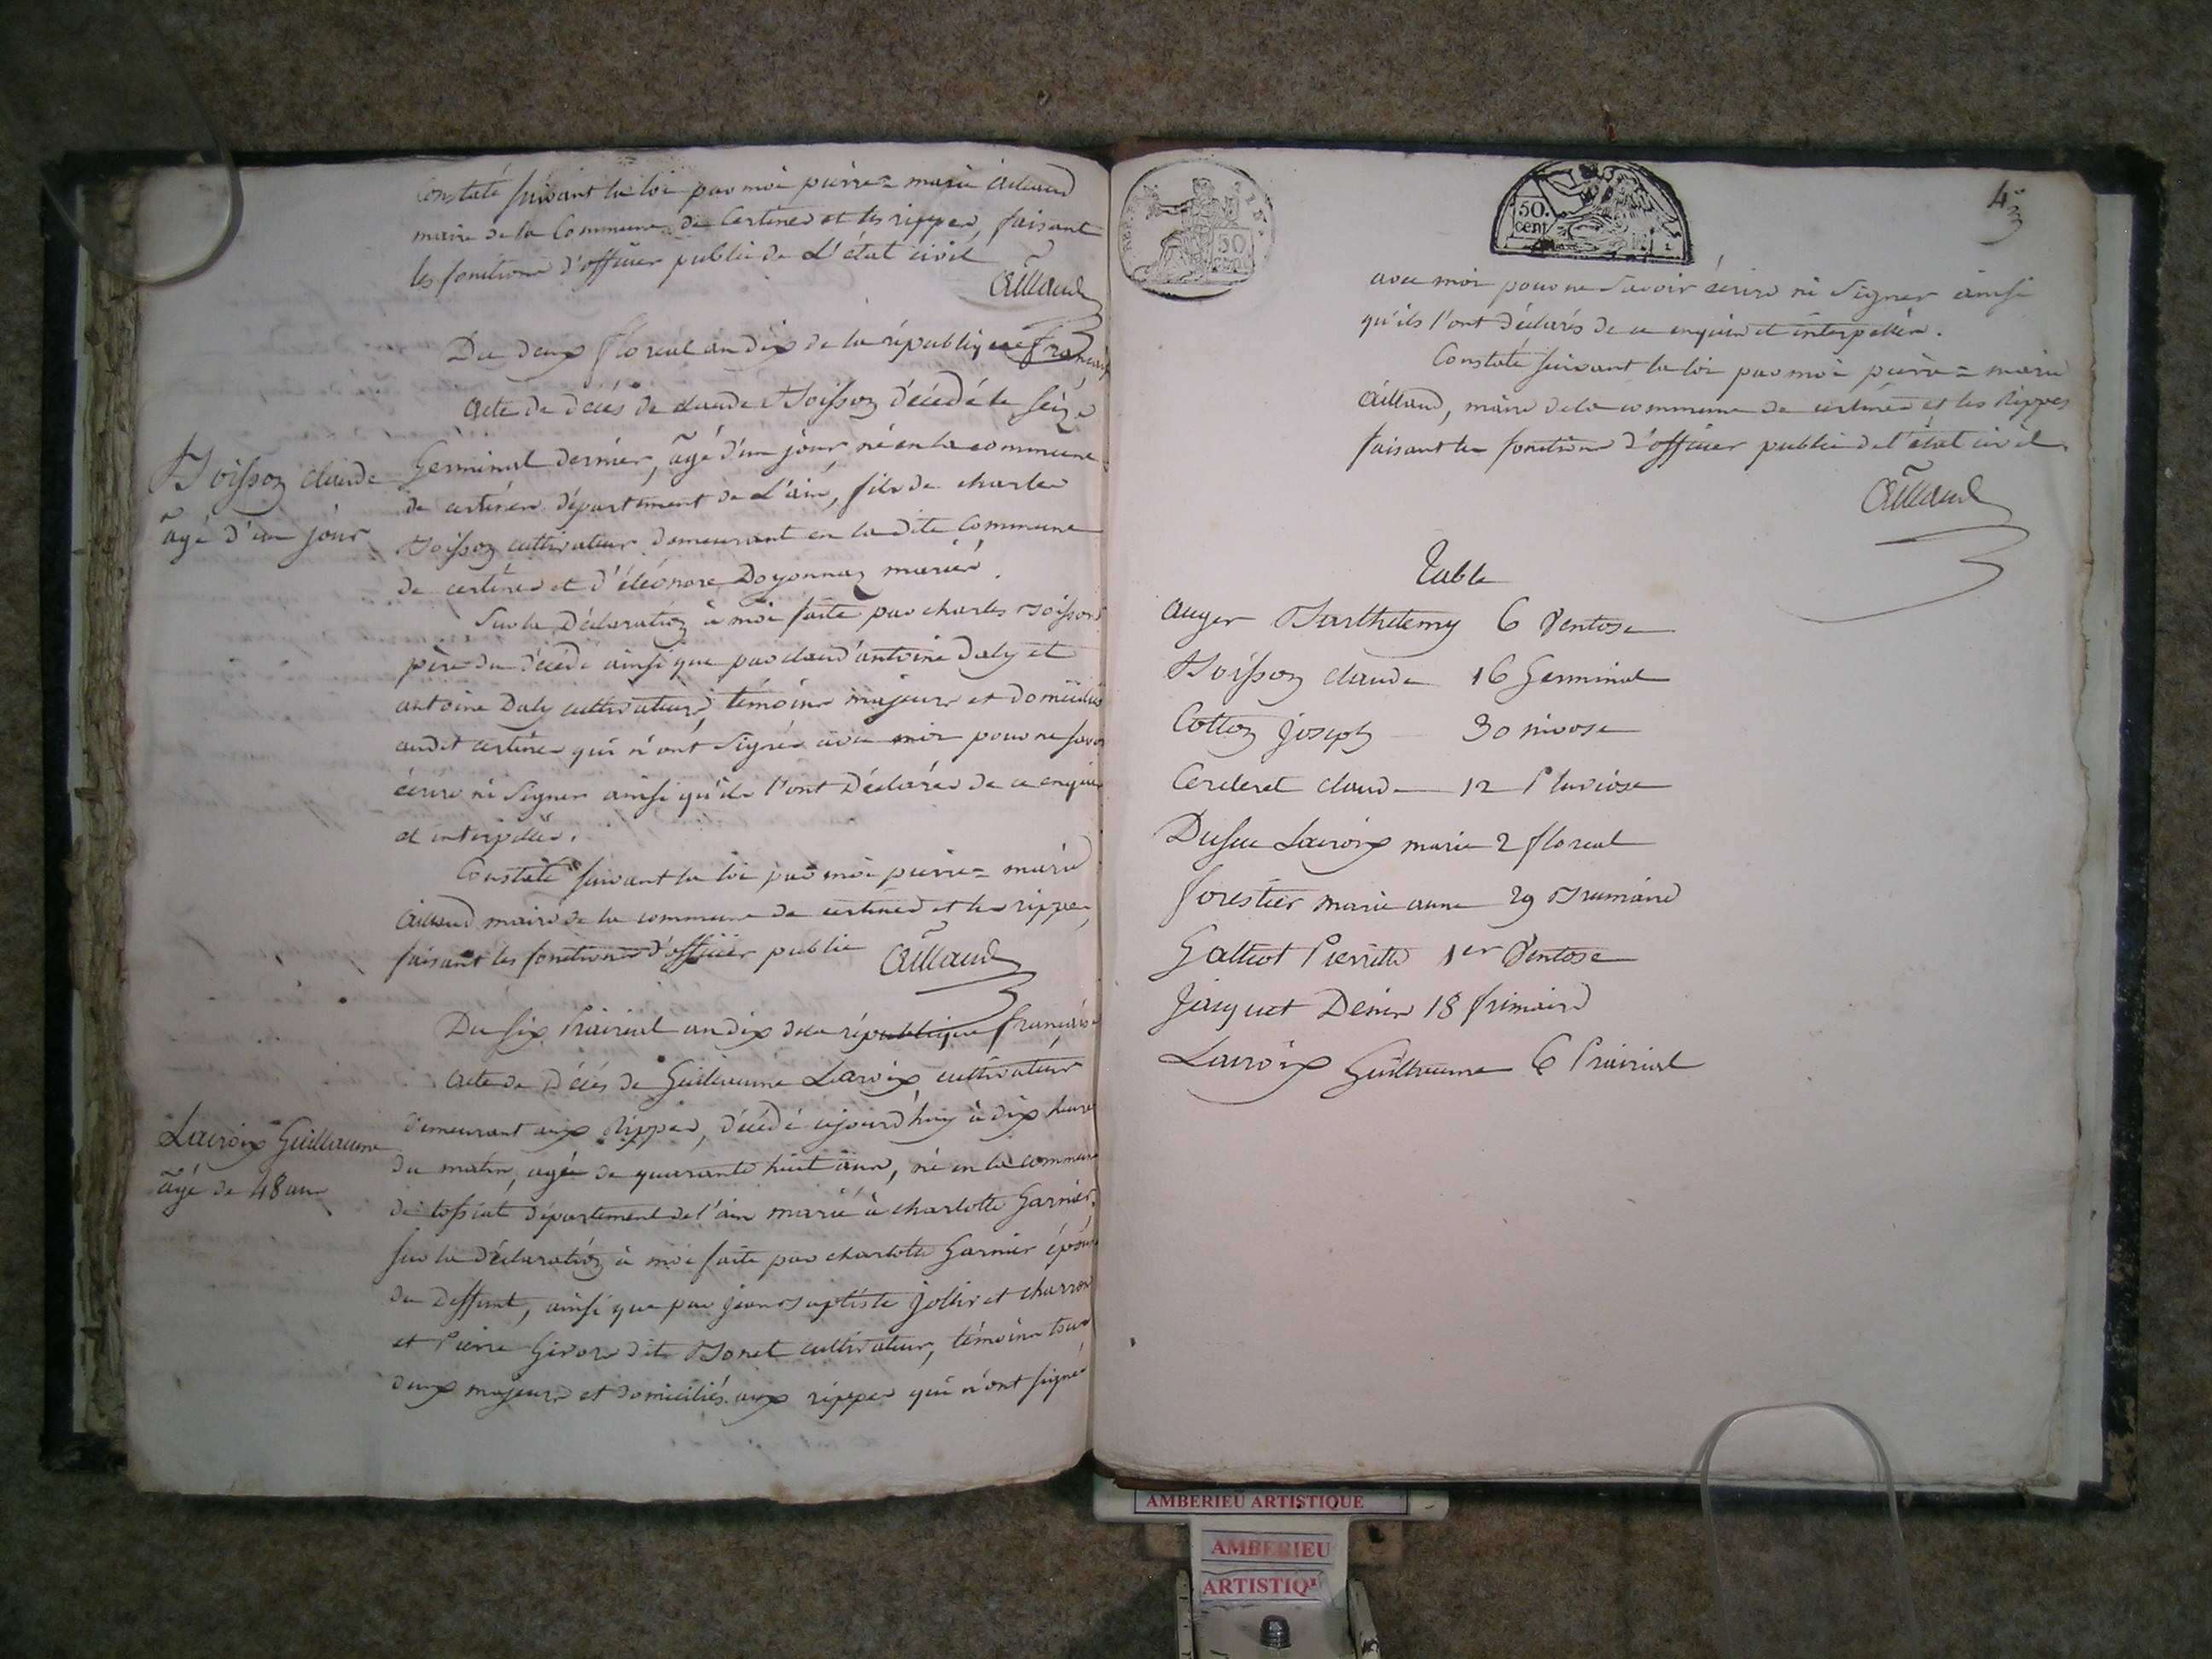 Constaté suivant la loi par moi pierre = marie Aillaud
maire de la Commune de Certines et les rippes, faisant
les fonctions d'officier public de L'état civil
Aillaud
Du deux floréal an dix de la république française
Acte de décés de claude Boisson décédé le seize
Boisson claude
âgé d'un jour
Germinal dernier, âgé d'un jour né en la commune
de certines département de L'ain, fils de charles
Boisson cultivateur demeurant en la dite Commune
de certines et d'éléonore Doyonnaz mariés.
Sur la Déclaration à moi faite par charles Boisson
père du décédé ainsi que par claud'antoine Daly et
antoine Daly cultivateurs, témoins majeurs et domiciliés
audit certines qui n'ont signés avec moi pour ne savoir
écrire ni signer ainsi qu'ils l'ont Déclarés de ce enquis
et interpellés.
Constaté suivant la loi par moi pierre = marie
Aillaud maire de la commune de certines et les rippes,
faisant les fonctions d'officier public Aillaud
Du six Prairial an dix de la république française
Acte de Décés de Guillaume Lacroix cultivateur
Lacroix Guillaume
âgé de 48 ans
demeurant aux Rippes, décédé ajourd'huy à dix heures
du matin, agé de quarante huit ans, né en la commune
de tossiat département de l'ain marié à charlotte Garnier.
sur la déclaration à moi faite par charlotte Garnier épouse
du deffunt, ainsi que par jean Baptiste charron
et Pierre dit Bonet cultivateur, témoins tous
deux majeurs et domiciliés aux rippes qui n'ont signé
50
50.
cent
4e
avec moi pour ne savoir écrire ni signer ainsi
qu'ils l'ont déclarés de ce enquis et interpellés.
Constaté suivant la loi par moi pierre = marie
Aillaud, maire de la commune de certines et les Rippes
faisant les fonctions d'officier public de l'état civil.
Aillaud
Table
auger Barthelemy 6 Ventose
Boisson claude 16 Germinal
Cotton joseph 30 nivose
claude 12 Pluviose
Lacroix marie 2 floreal
forestier marie anne 29 Brumaire
Pierrette 1er Ventose
Jacquet Denis 18 frimaire
Lacroix Guillaume 6 Prairial
AMBERIEU ARTISTIQUE
AMBERIEU
ARTISTIQU